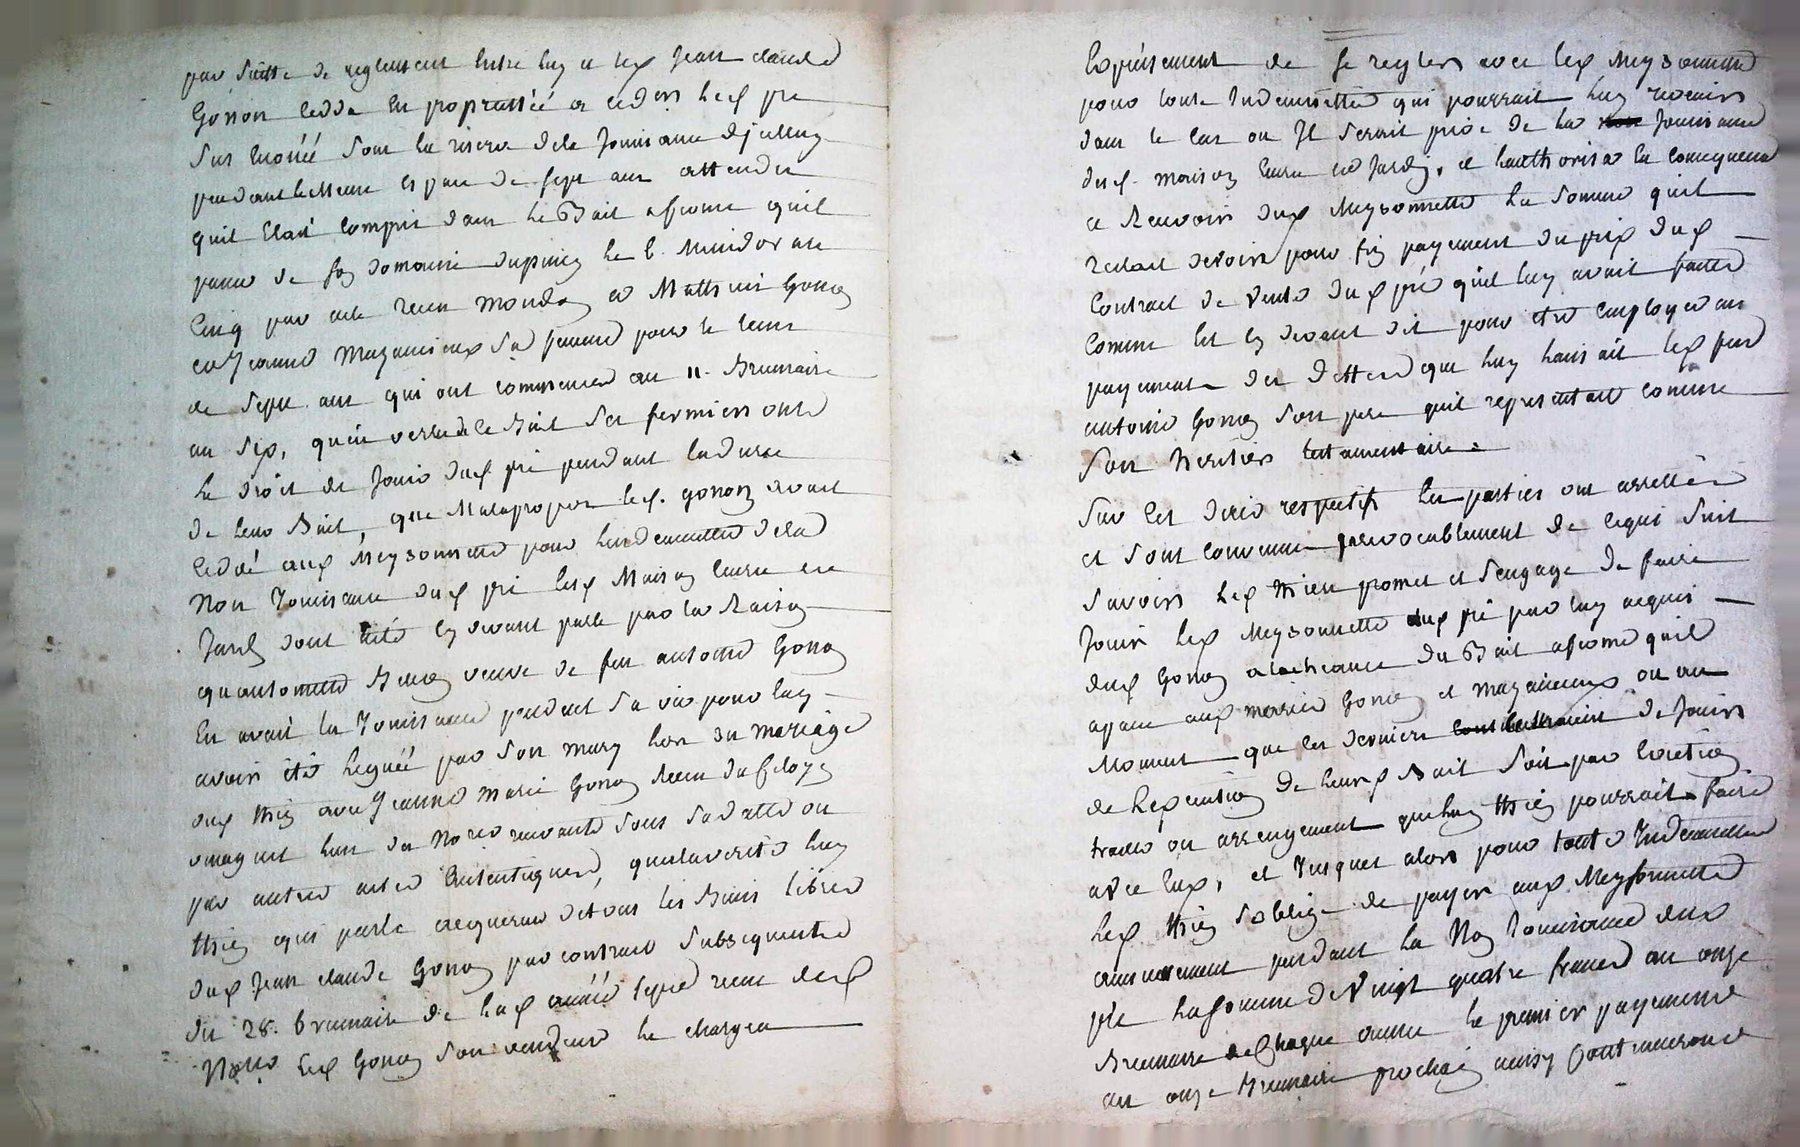 par suitte de reglement entre luy et led Jean claude
Gonon cedda en proprietéé a ced led pre
sur enoncéé sous la riserve dela Jouissance d'jcelluy
pendant lettems et espace de sept ans attendu
quil Etait compris dans le Bail afferme quil
passa de son domaine dupiney le 6. Messidor an
Cinq par acte recu Mondon a Matthieu Gonon
et Jeanne Mazancieux sa femme pour le tems
de sept ans qui ont commencés au 11. Brumaire
an six, quen vertu de ce Bail ses fermiers ont
le droit de Jouir dud pré pendant la durée
de leur Bail, que Malapropos led. gonon avait
ceddé aud Meyssonnette pour lindemnitté dela
Non Jouissance dud pré lesd Maison Cure et
Jardin dont été cy devant parlé par la Raison
quantoinette Brun veuve de feu antoine Gonon
En avait la Jouissance pendant sa vie pour luy
avoir été leguéé par son mary lors du mariage
dud thien avec Jeanne Marie Gonon Recu
lun des No.res recevants sous sa datte ou
par autres actes autentiques, quela verité luy
thien qui parle acquerat detous les Biens libres
dud Jean claude Gonon par contrat subsequent
du 28. brumaire de lad année sept recu dud
No.re led Gonon son vendeur le chargea
Expressement de se regler avec led Meyssonnette
pour toute Indemnitté qui pourrait luy revenir
dans le cas ou Jl serait privé de la Jouissance
desd. maison Cure et Jardin, et lauthorisa en consequence
a Retenir dud Meyssonnette la somme quil
restait devoir pour fin payement du prix dud
Contrat de vente dud pré quil luy avait passé
Comme Est cy devant dit pour etre employé au
payement des dettes que luy laissait led feu
antoine Gonon son pere quil representait comme
son heritier testamentaire.
sur les dires respectifs les parties ont arretté
et sont convenues irrevocablement de cequi suit
savoir led thien promet et s'engage de faire
Jouir led Meyssonnette dud pré par luy acquis
dud Gonon a lecheance du Bail afferme quil
aux mariés Gonon et mazancieux ou au
Moment que ces derniers de Jouir
de lexpiration de leurd Bail soit par
traité ou arrengement queluy thien pourrait faire
avec Eux, et Jusques alors pour toute Indemnitté
led thien soblige de payer aud Meyssonnette
annuellement pendant la Non Jouissance dud
pré la somme de vingt quatre francs au onze
Brumaire de Chaque année le premier payement
au onze Brumaire prochain ainsy Continuerons